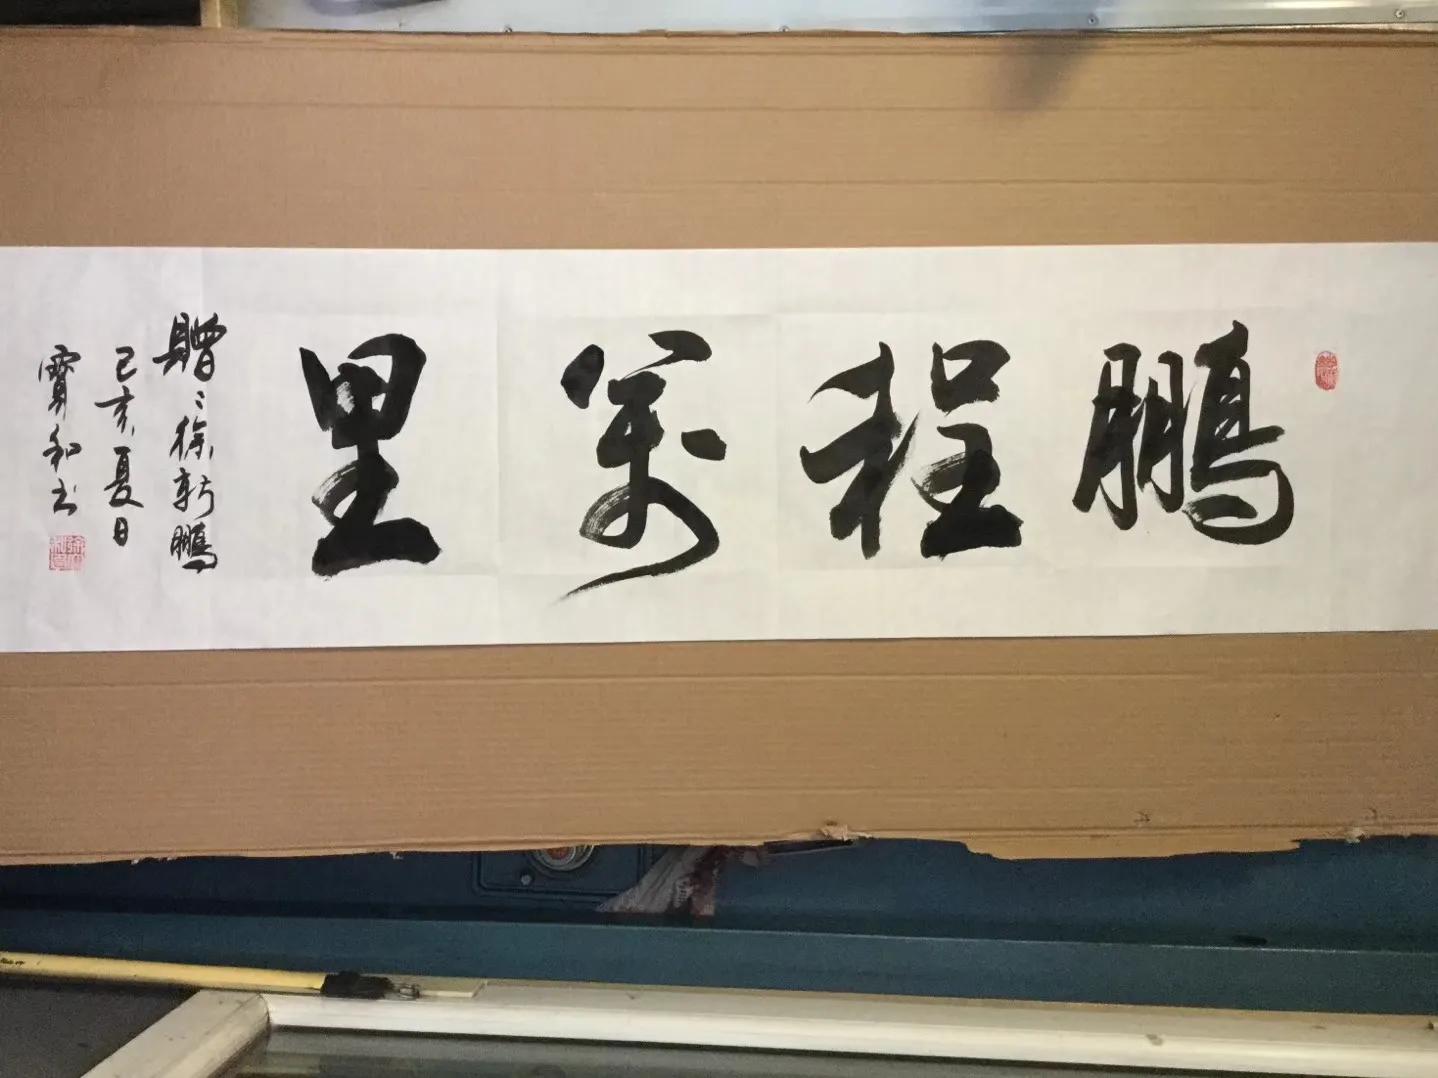 鵬程萬里
贈：徐新鵬
己亥夏日
寶和书